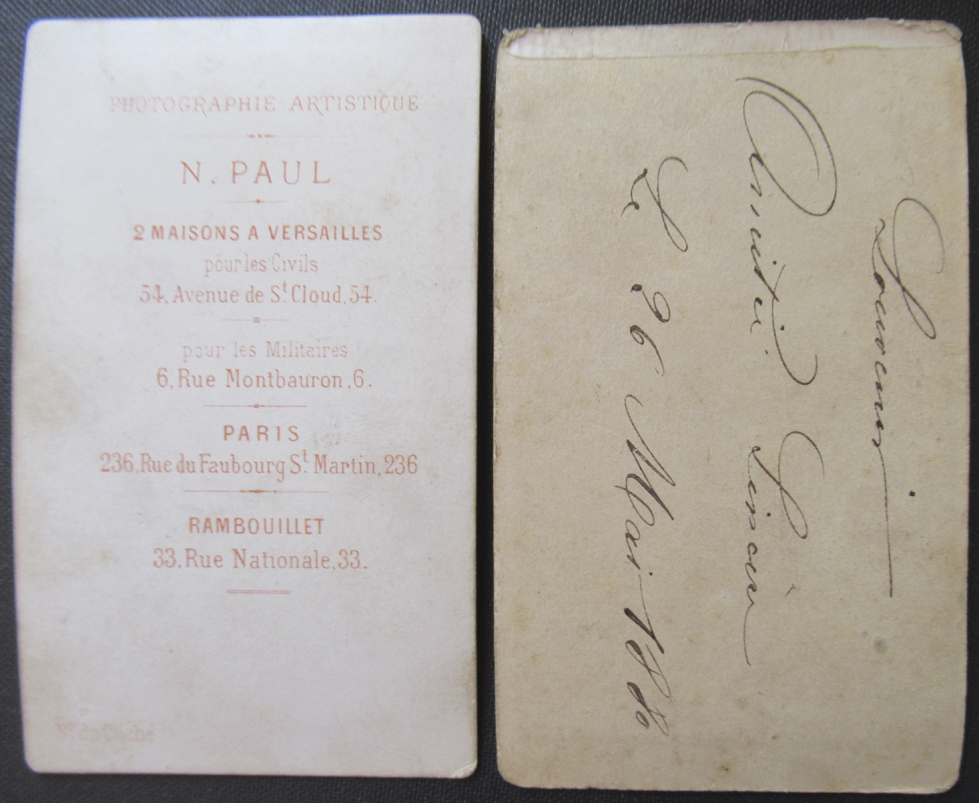 PHOTOGRAPHIE ARTISTIQUE
N. PAUL
2 MAISONS A VERSAILLES
pour les Civils
54, Avenue de St Cloud, 54.
pour les Militaires
6, Rue Montbauron, 6.
PARIS
236, Rue du Faubourg St Martin, 236
RAMBOUILLET
33, Rue Nationale, 33.
No du Cliché
Souvenir
Amitié Sincère
Le 26 Mai 1880